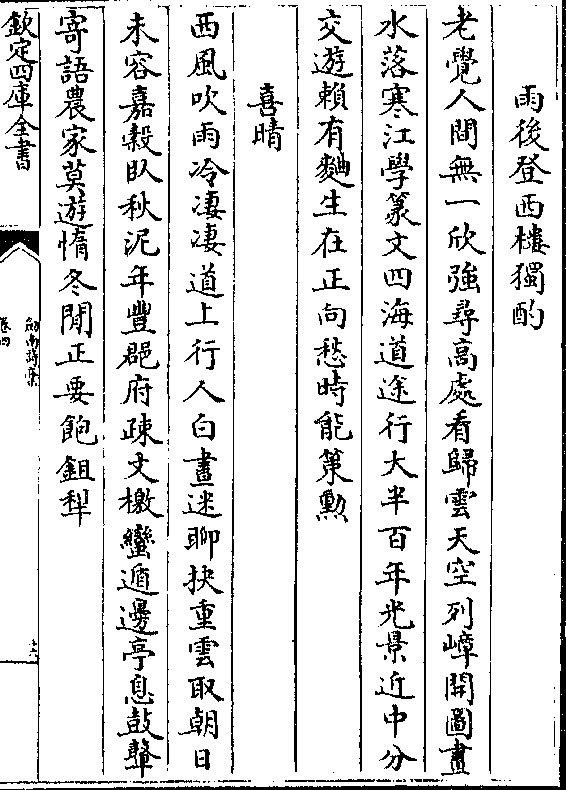 雨後登西樓獨酌
老覺人間無一欣強尋高處看歸雲天空列嶂開圖畫
水落寒江學篆文四海道途行大半百年光景近中分
交遊賴有麴生在正向愁時能策勲
喜晴
西風吹雨冷凄凄道上行人白晝迷聊抉重雲取朝日
未容嘉糓臥秋泥年豐郡府疎文檄蠻遁邊亭息鼓鼙
寄語農家莫遊惰冬閒正要飽鉏犂
欽定四庫全書
劒南詩藁
卷四
十六